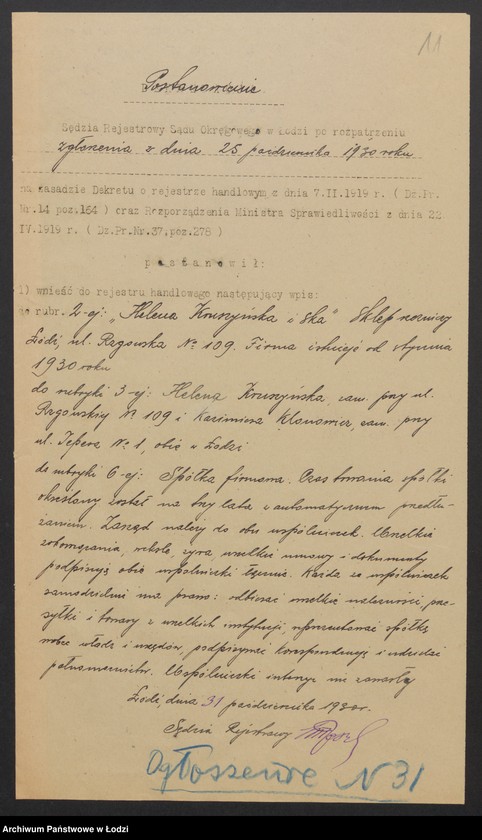 11
Postanowienie
Sędzia Rejestrowy Sądu Okręgowego w Łodzi po rozpatrzeniu
zgłoszenia z dnia 25 października 1930 roku
na zasadzie Dekretu o rejestrze handlowym z dnia 7.II.1919 r. ( Dz.Pr.
Nr.14 poz.164 ) oraz Rozporządzenia Ministra Sprawiedliwości z dnia 22
IV.1919 r. ( Dz.Pr.Nr.37,poz.278 )
p o s t a n o w i ł :
1) wnieść do rejestru handlowego następujący wpis:
do rubr. 2-ej: „Helena Kruszyńska i Ska" Sklep rzeźniczy
Łódź, ul. Rzgowska № 109. Firma istnieje od stycznia
1930 roku
do rubryki 3-ej: Helena Kruszyńska, zam. przy ul.
Rzgowskiej № 109 i Kazimiera Klonowicz, zam. przy
ul. № 1, obie w Łodzi
do rubryki 6-ej: Spółka firmowa. Czas trwania spółki
określony został na trzy lata z automatycznym przedłu-
żaniem. Zarząd należy do obu wspólniczek. Wszelkie
zobowiązania, weksle, żyra, wszelkie umowy i dokumenty
podpisują obie wspólniczki łącznie. Każda ze wspólniczek
samodzielnie ma prawo: odbierać wszelkie należności, prze-
syłki i towary z wszelkich instytucji, reprezentować spółkę
wobec władz i urzędów, podpisywać korespondencję i udzielać
pełnomocnictw. Wspólniczki intercyz nie zawarły
Łódź, dnia 31 października 1930 r.
Sędzia Rejestrowy
Ogłoszenie N 31
Archiwum Państwowe w Łodzi